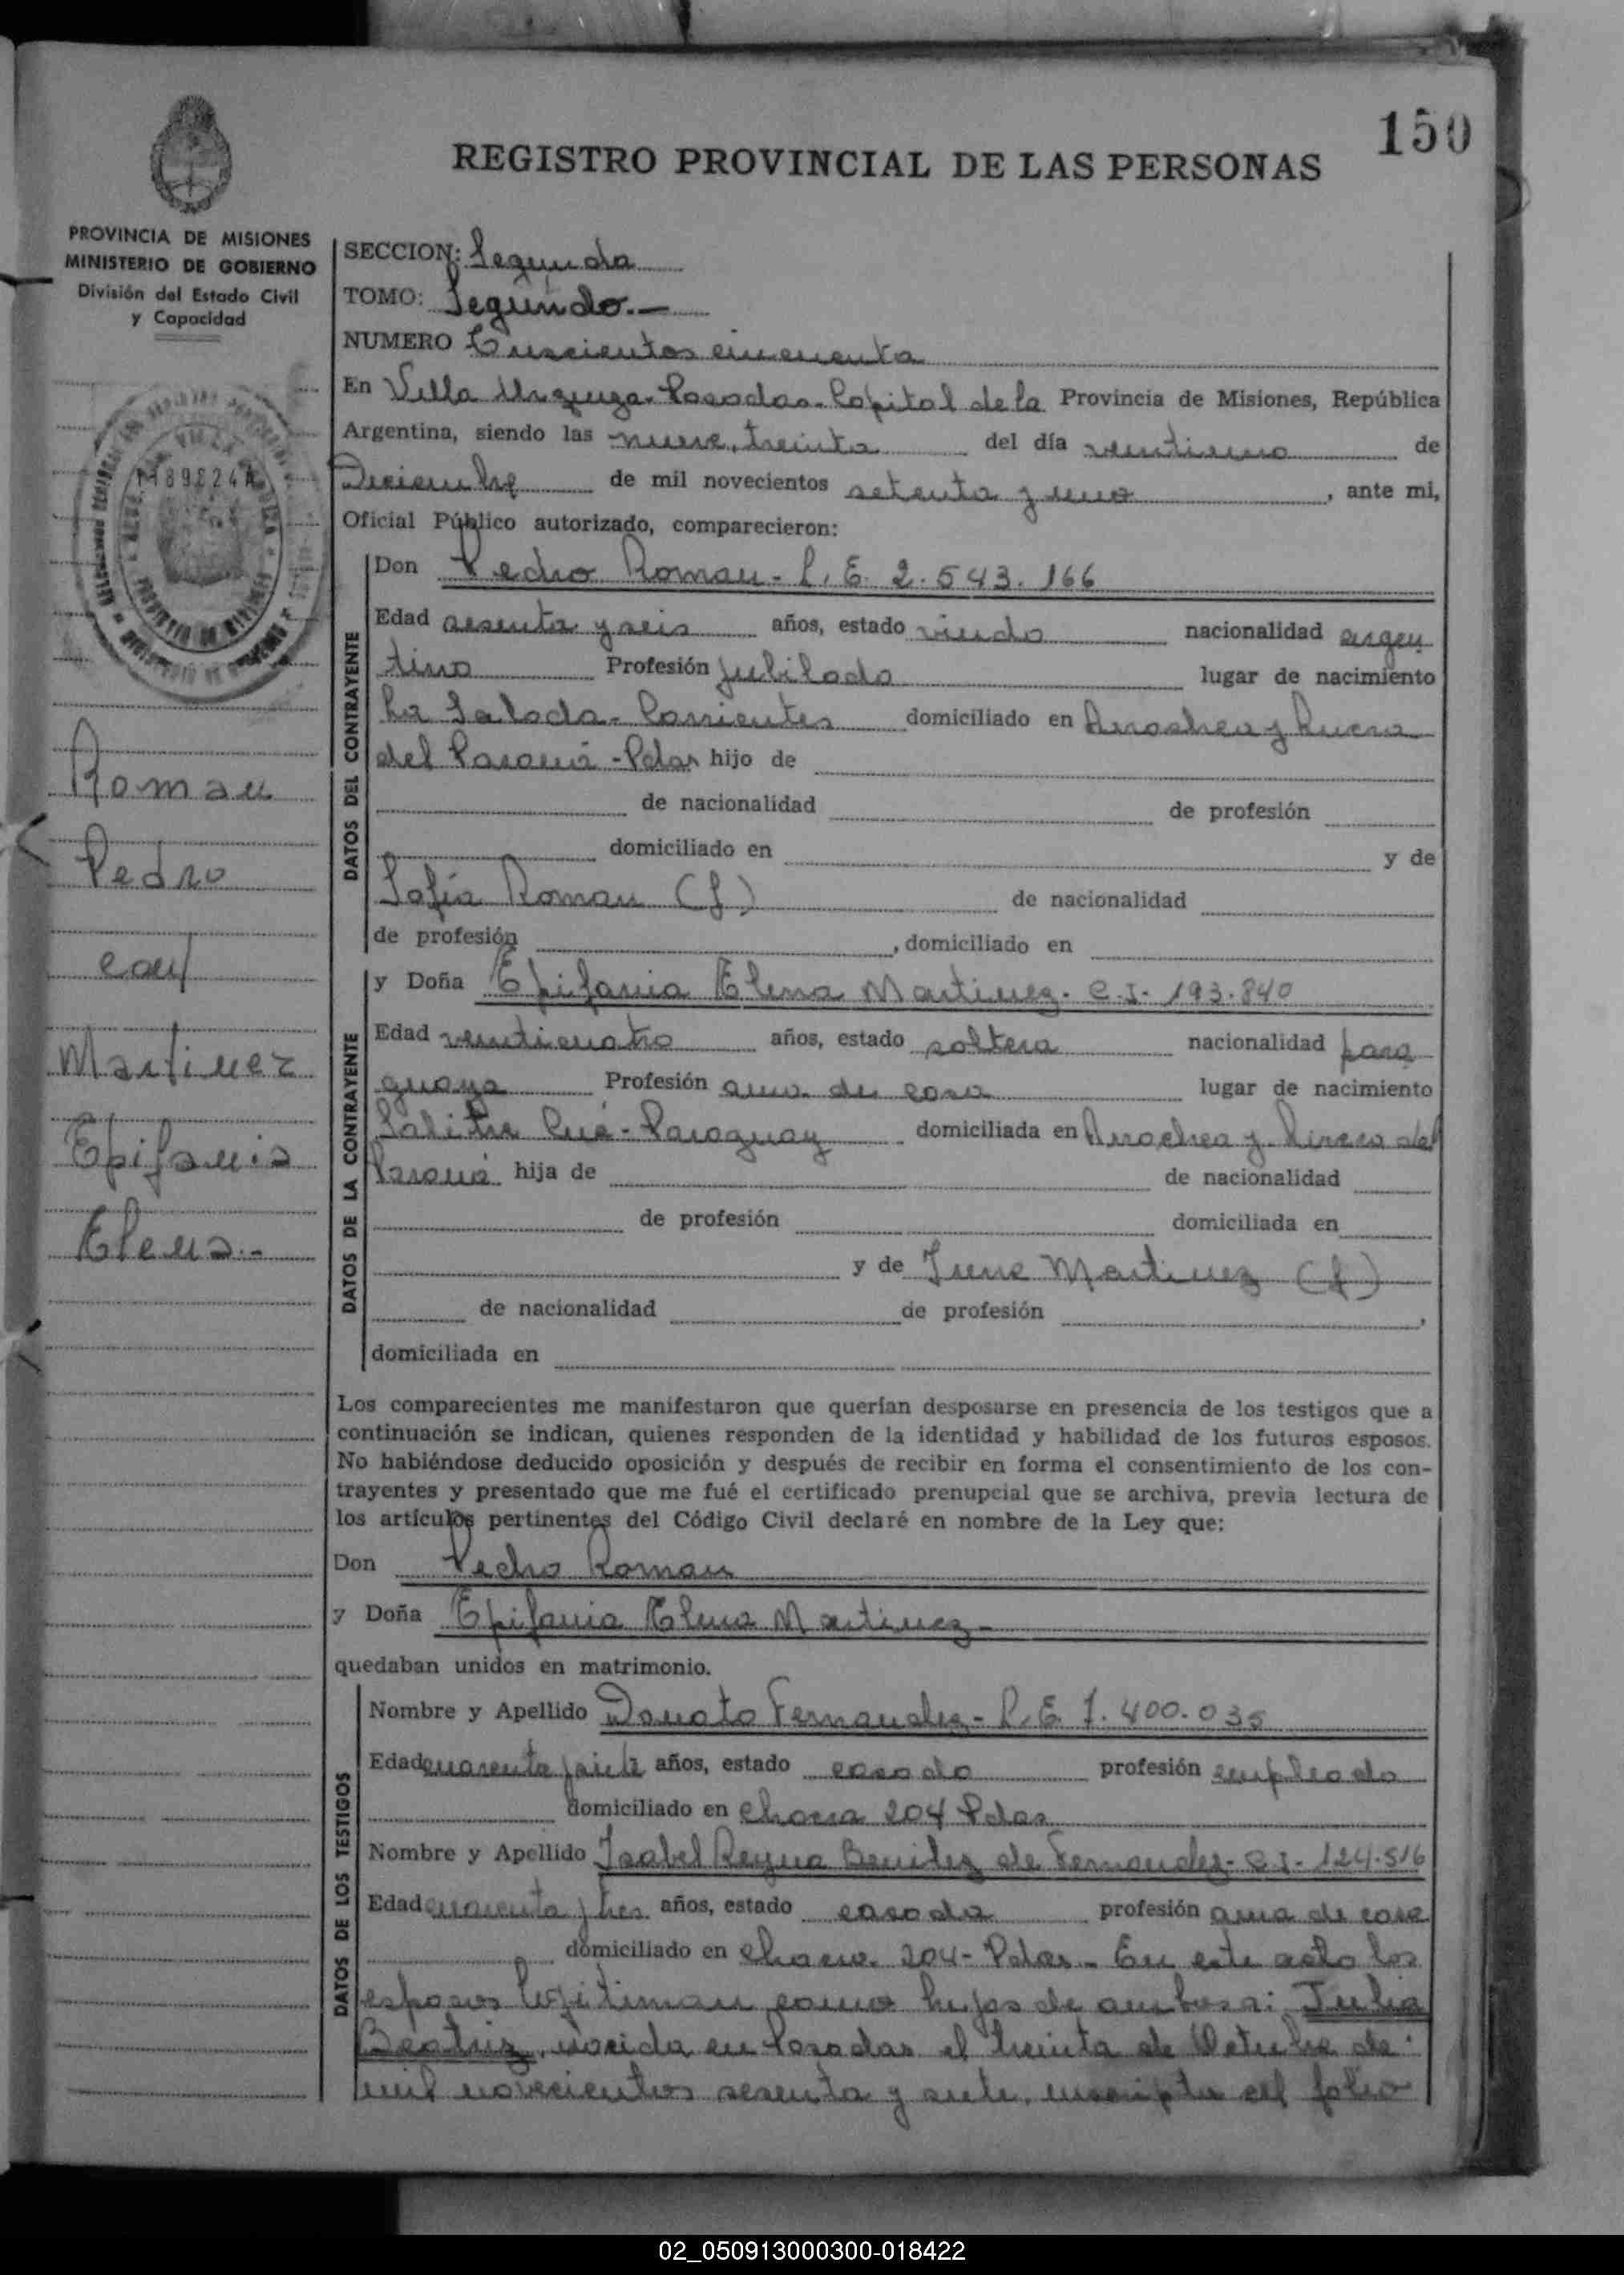 150
REGISTRO PROVINCIAL DE LAS PERSONAS
PROVINCIA DE MISIONES
MINISTERIO DE GOBIERNO
División del Estado Civil
y Capacidad
SECCION: Segunda
TOMO: Segundo.-
NUMERO cincuenta
En Villa Urquiza-Posadas-Capital de la Provincia de Misiones, República
Argentina, siendo las nueve, treinta del día veintiuno de
Diciembre de mil novecientos setenta y uno, ante mi,
Oficial Público autorizado, comparecieron:
DATOS DEL CONTRAYENTE
Don Pedro Roman - L.E. 2.543.166
Edad sesenta y seis años, estado viudo nacionalidad argen
tino Profesión jubilado lugar de nacimiento
La Salada-Corrientes domiciliado en Arrechea y Rivera
del Paraná-Pdas hijo de
de nacionalidad de profesión
domiciliado en y de
Sofía Roman (f) de nacionalidad
de profesión , domiciliado en
DATOS DE LA CONTRAYENTE
y Doña Epifania Elena Martinez. C.I. 193.840
Edad veinticuatro años, estado soltera nacionalidad para
guaya Profesión ama de casa lugar de nacimiento
Salitre Cué-Paraguay domiciliada en Arrechea y Rivera del
Paraná hija de de nacionalidad
de profesión domiciliada en
y de Irene Martinez (f)
de nacionalidad de profesión ,
domiciliada en
Los comparecientes me manifestaron que querían desposarse en presencia de los testigos que a
continuación se indican, quienes responden de la identidad y habilidad de los futuros esposos.
No habiéndose deducido oposición y después de recibir en forma el consentimiento de los con-
trayentes y presentado que me fué el certificado prenupcial que se archiva, previa lectura de
los artículos pertinentes del Código Civil declaré en nombre de la Ley que:
Don Pedro Roman
y Doña Epifania Elena Martinez-
quedaban unidos en matrimonio.
DATOS DE LOS TESTIGOS
Nombre y Apellido Donato Fernandez-L.E. 7.400.035
Edad cuarenta y siete años, estado casado profesión empleado
domiciliado en 204 Pdas
Nombre y Apellido Isabel Reyna Benitez de Fernandez-C.I. 124.516
Edad cuarenta y tres años, estado casada profesión ama de casa
domiciliado en 204-Pdas- En este acto los
esposos legitiman como hijos de ambos a: Julia
Beatriz, nacida en Posadas el treinta de Octubre de
mil novecientos sesenta y siete, inscripta al folio
Roman
Pedro
con
Martinez
Epifania
Elena.-
02_050913000300-018422